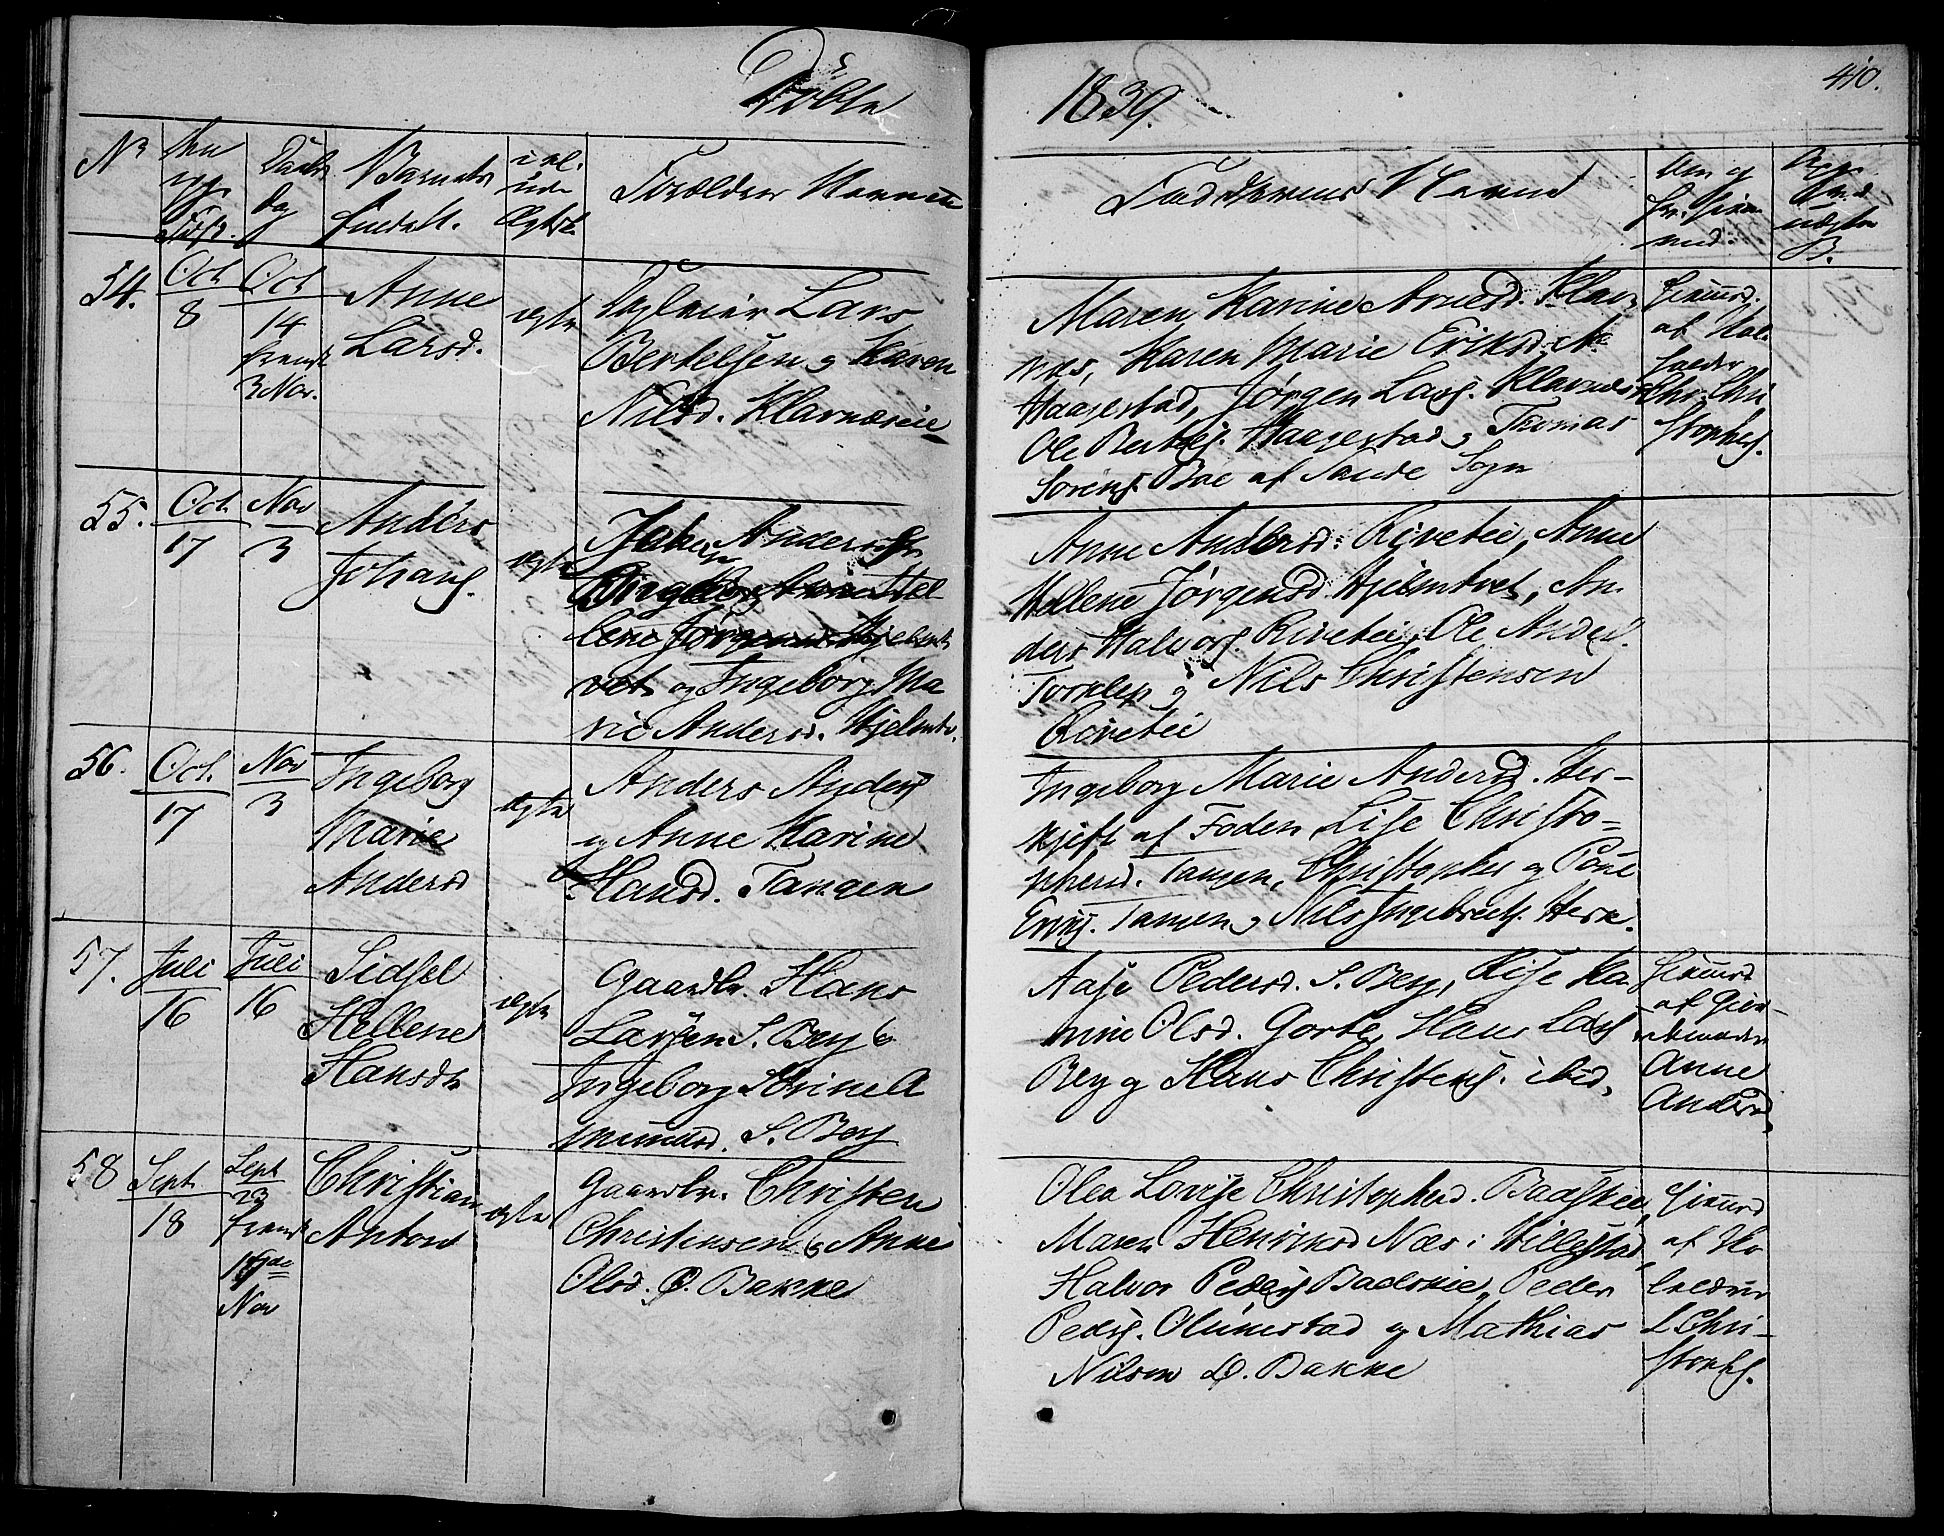 Døbte
1839.
410.
No
Daabs
dag
Barnets
i el.
uden
Ægtesk.
Forældres Navne
Faddernes Navne
Om og
54.
Oct
8
Oct
14
fremst
3 Nov.
Anne
Larsd.
ægte
Lars
Bertelsen og Karen
Nilsd. Klavnæseie
Maren Karine Arnesd. Klav-
næs, Karen Marie Eriksd.
Haagestad, Jørgen Lars. Klavnæs
Ole Bertels. Haagestad og Thomas
Sørens. Boe af Sande Sogn
hiemd.
af
Chr. Chri
stophs.
55.
Oct
17
Nov
3
Anders
Johans.
ægte
Johan Anders.
og Ingeborg Ma
rie Andersd. Hjelmtv.
Anne Andersd. Rivetei, Anne
Hellene Jørgensd. Hjelmtvet, An-
ders Halvors. Rivetei, Ole Anders.
Torklep og Nils Christensen
Rivetei
56.
Oct.
17
Nov
3
Ingeborg
Marie
Andersd
ægte
Anders Anders
og Anne Karine
Hansd. Tangen
Ingeborg Marie Andersd. Her-
Lise Christo-
phersd. Tangen, Christopher og Poul
Tangen og Nils Ingebrects. Herk.
57.
Juli
16
Juli
16
Sidsel
Hellene
Hansdr
ægte
Gaardbr. Hans
Larsen S. Berg og
Ingeborg Serine A
mundsd. S. Berg
Aase Pedersd. S. Berg, Lise Ka
rine Olsd. Gorte, Hans Lars
Berg og Hans Christens. ibid,
hiemd
af Gior-
demoder
Anne
Andersd,
58
Sept
18
Sept
23
fremst
Nov
Christian
Anton
ægte
Gaardbr. Christen
Christensen og Anne
Olsd. Ø. Bakke
Olea Lovise Christophersd.
Maren Henriksd Næs i Hillestad,
Halvor Peders Peder
Peders. Olumstad og Mathias
Nilsen Ø. Bakke
hiemd
af
L Chri-
stophs.